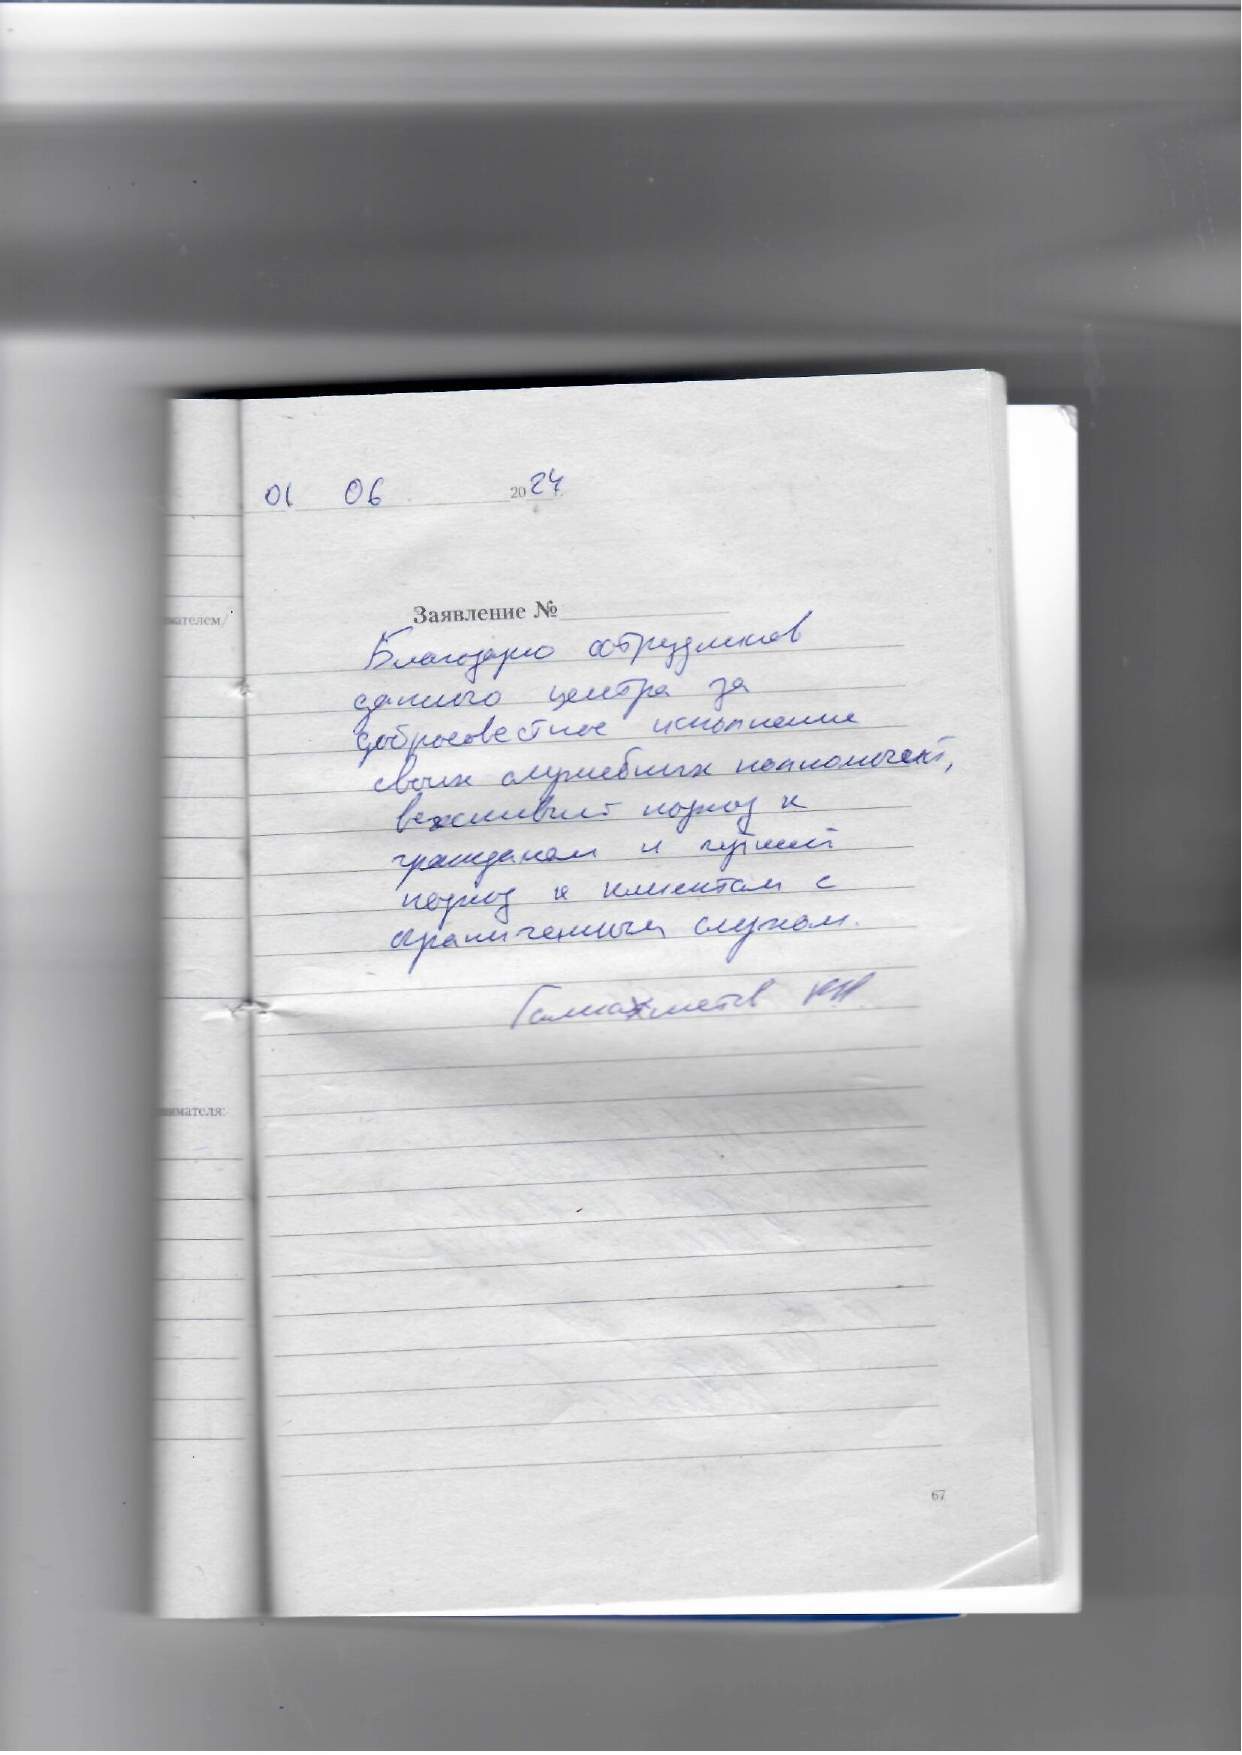 01 06 2024
ателем/
Заявление №
Благодарю сотрудников
данного центра за
добросовестное исполнение
своих служебных полномочий,
вежливый подход к
гражданам и лучший
подход к клиентам с
ограниченным слухом.
имателя:
67